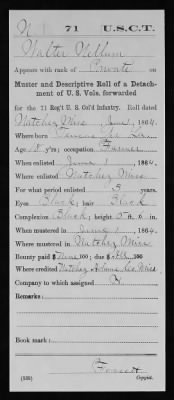 N 71 U.S.C.T.
Walter Nellum
Appears with rank of Private on
Muster and Descriptive Roll of a Detach-
ment of U. S. Vols. forwarded
for the 71 Reg't U. S. Col'd Infantry. Roll dated
Natchez Miss June 1, 1864.
Where born
Age 18 y'rs; occupation Farmer
When enlisted June 1, 1864.
Where enlisted Natchez Miss
For what period enlisted 3 years.
Eyes Black; hair Black
Complexion Black; height 5 ft. in.
When mustered in June 1, 1864.
Where mustered in Natchez Miss
Bounty paid $ 100; due $ 100
Where credited Natchez Adams Co. Miss.
Company to which assigned
Remarks:
Book mark:
(335) Copyist.